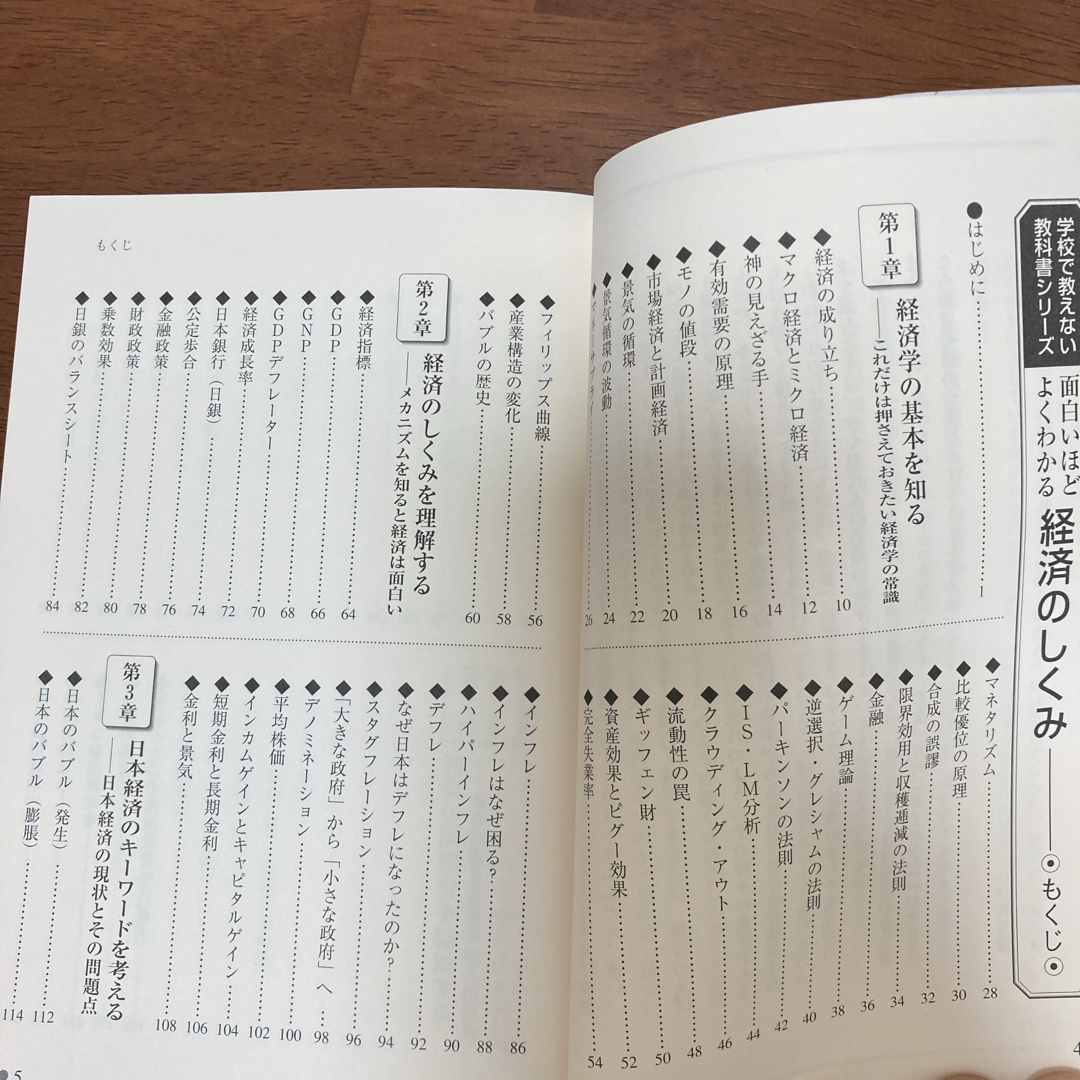 学校で教えない
教科書シリーズ
面白いほど
よくわかる
経済のしくみ
もくじ
●はじめに……1
第1章
経済学の基本を知る
――これだけは押さえておきたい経済学の常識
◆経済の成り立ち……10
◆マクロ経済とミクロ経済……12
◆神の見えざる手……14
◆有効需要の原理……16
◆モノの値段……18
◆市場経済と計画経済……20
◆景気の循環……22
◆景気循環の波動……24
26
◆マネタリズム……28
◆比較優位の原理……30
◆合成の誤謬……32
◆限界効用と収穫逓減の法則……34
◆金融……36
◆ゲーム理論……38
◆逆選択・グレシャムの法則……40
◆パーキンソンの法則……42
◆IS・LM分析……44
◆クラウディング・アウト……46
◆流動性の罠……48
◆ギッフェン財……50
◆資産効果とピグー効果……52
◆完全失業率……54
4
もくじ
◆フィリップス曲線……56
◆産業構造の変化……58
◆バブルの歴史……60
第2章
経済のしくみを理解する
――メカニズムを知ると経済は面白い
◆経済指標……64
◆GDP……66
◆GNP……68
◆GDPデフレーター……70
◆経済成長率……72
◆日本銀行（日銀）……74
◆公定歩合……76
◆金融政策……78
◆財政政策……80
◆乗数効果……82
◆日銀のバランスシート……84
◆インフレ……86
◆インフレはなぜ困る？……88
◆ハイパーインフレ……90
◆デフレ……92
◆なぜ日本はデフレになったのか？……94
◆スタグフレーション……96
◆「大きな政府」から「小さな政府」へ……98
◆デノミネーション……100
◆平均株価……102
◆インカムゲインとキャピタルゲイン……104
◆短期金利と長期金利……106
◆金利と景気……108
第3章
日本経済のキーワードを考える
――日本経済の現状とその問題点
◆日本のバブル（発生）……112
◆日本のバブル（膨脹）……114
5